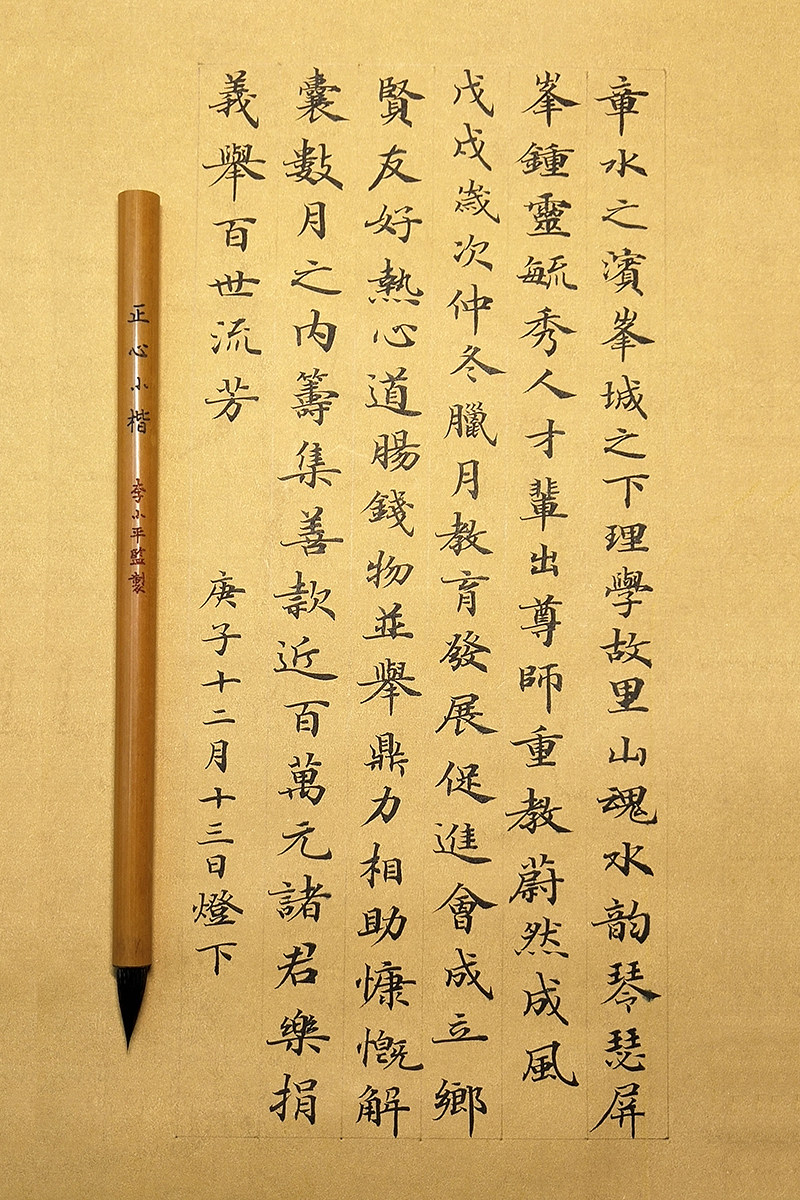 章水之濱峯城之下理學故里山魂水韵琴瑟屏
峯鍾靈毓秀人才輩出尊師重教蔚然成風
戊戌歲次仲冬臘月教育發展促進會成立鄉
賢友好熱心道腸錢物並舉鼎力相助慷慨解
囊數月之内籌集善款近百萬元諸君樂捐
義舉百世流芳
庚子十二月十三日燈下
正心小楷
李小平監製